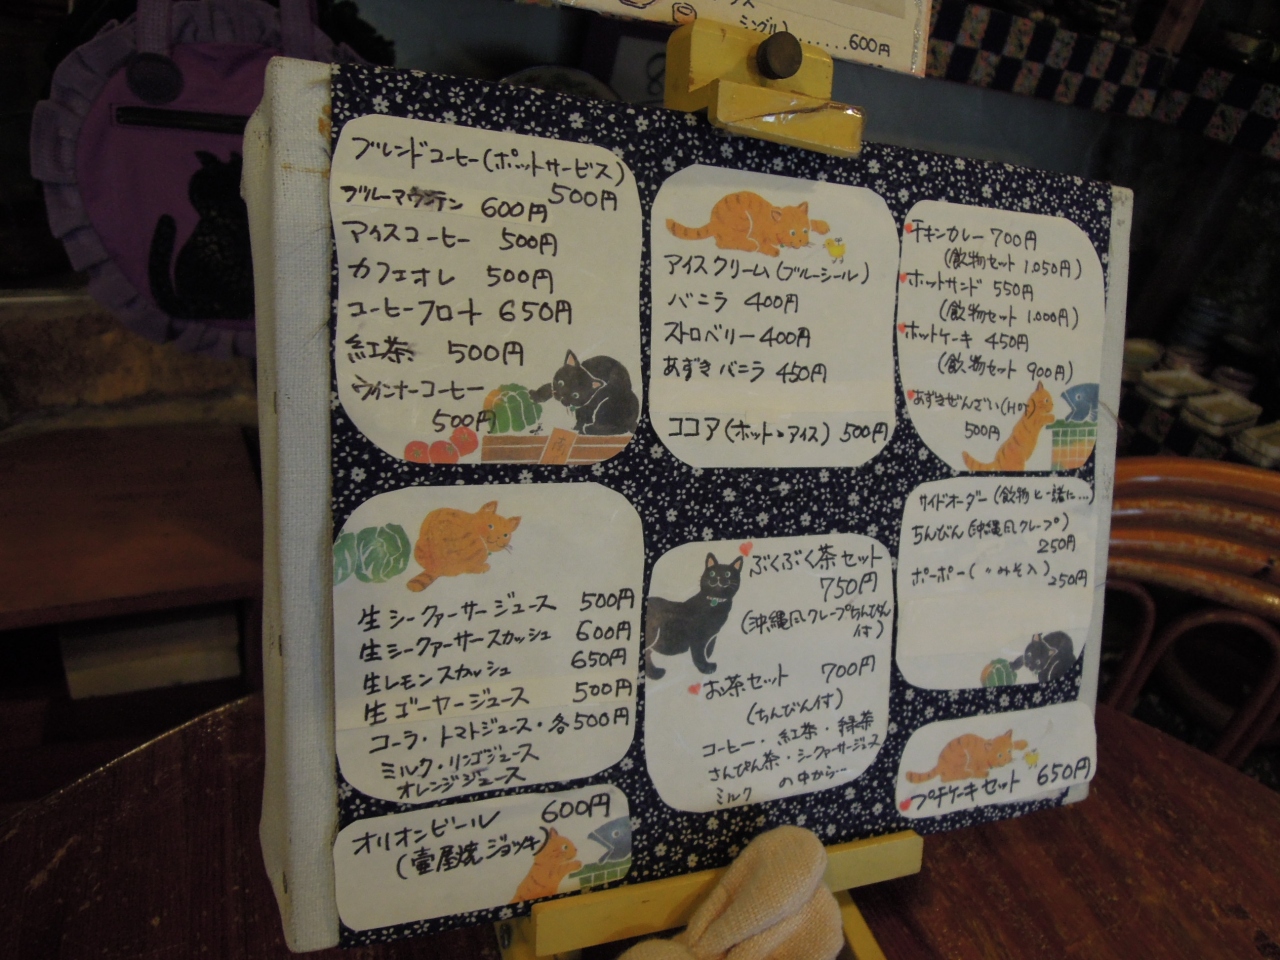 ミングル)......600円
ブレンドコーヒー(ポットサービス)
500円
ブルーマウンテン 600円
アイスコーヒー 500円
カフェオレ 500円
コーヒーフロート 650円
紅茶 500円
ウィンナーコーヒー
500円
アイスクリーム(ブルーシール)
バニラ 400円
ストロベリー 400円
あずきバニラ 450円
ココア(ホット・アイス) 500円
チキンカレー 700円
(飲物セット 1.050円)
ホットサンド 550円
(飲物セット 1.000円)
ホットケーキ 450円
(飲物セット 900円)
あずきぜんざい(HOT)
500円
生シークァーサージュース 500円
生シークァーサースカッシュ 600円
生レモンスカッシュ 650円
生ゴーヤージュース 500円
コーラ・トマトジュース・各500円
ミルク・リンゴジュース
オレンジジュース
ぶくぶく茶セット
750円
(沖縄風クレープちんびん
付)
お茶セット 700円
(ちんびん付)
コーヒー・紅茶・緑茶
さんぴん茶・シークァーサージュース
ミルク の中から…
サイドオーダー(飲物と一緒に…)
ちんびん(沖縄風クレープ)
250円
ポーポー(〃みそ入) 250円
プチケーキセット 650円
オリオンビール 600円
(壷屋焼ジョッキ)